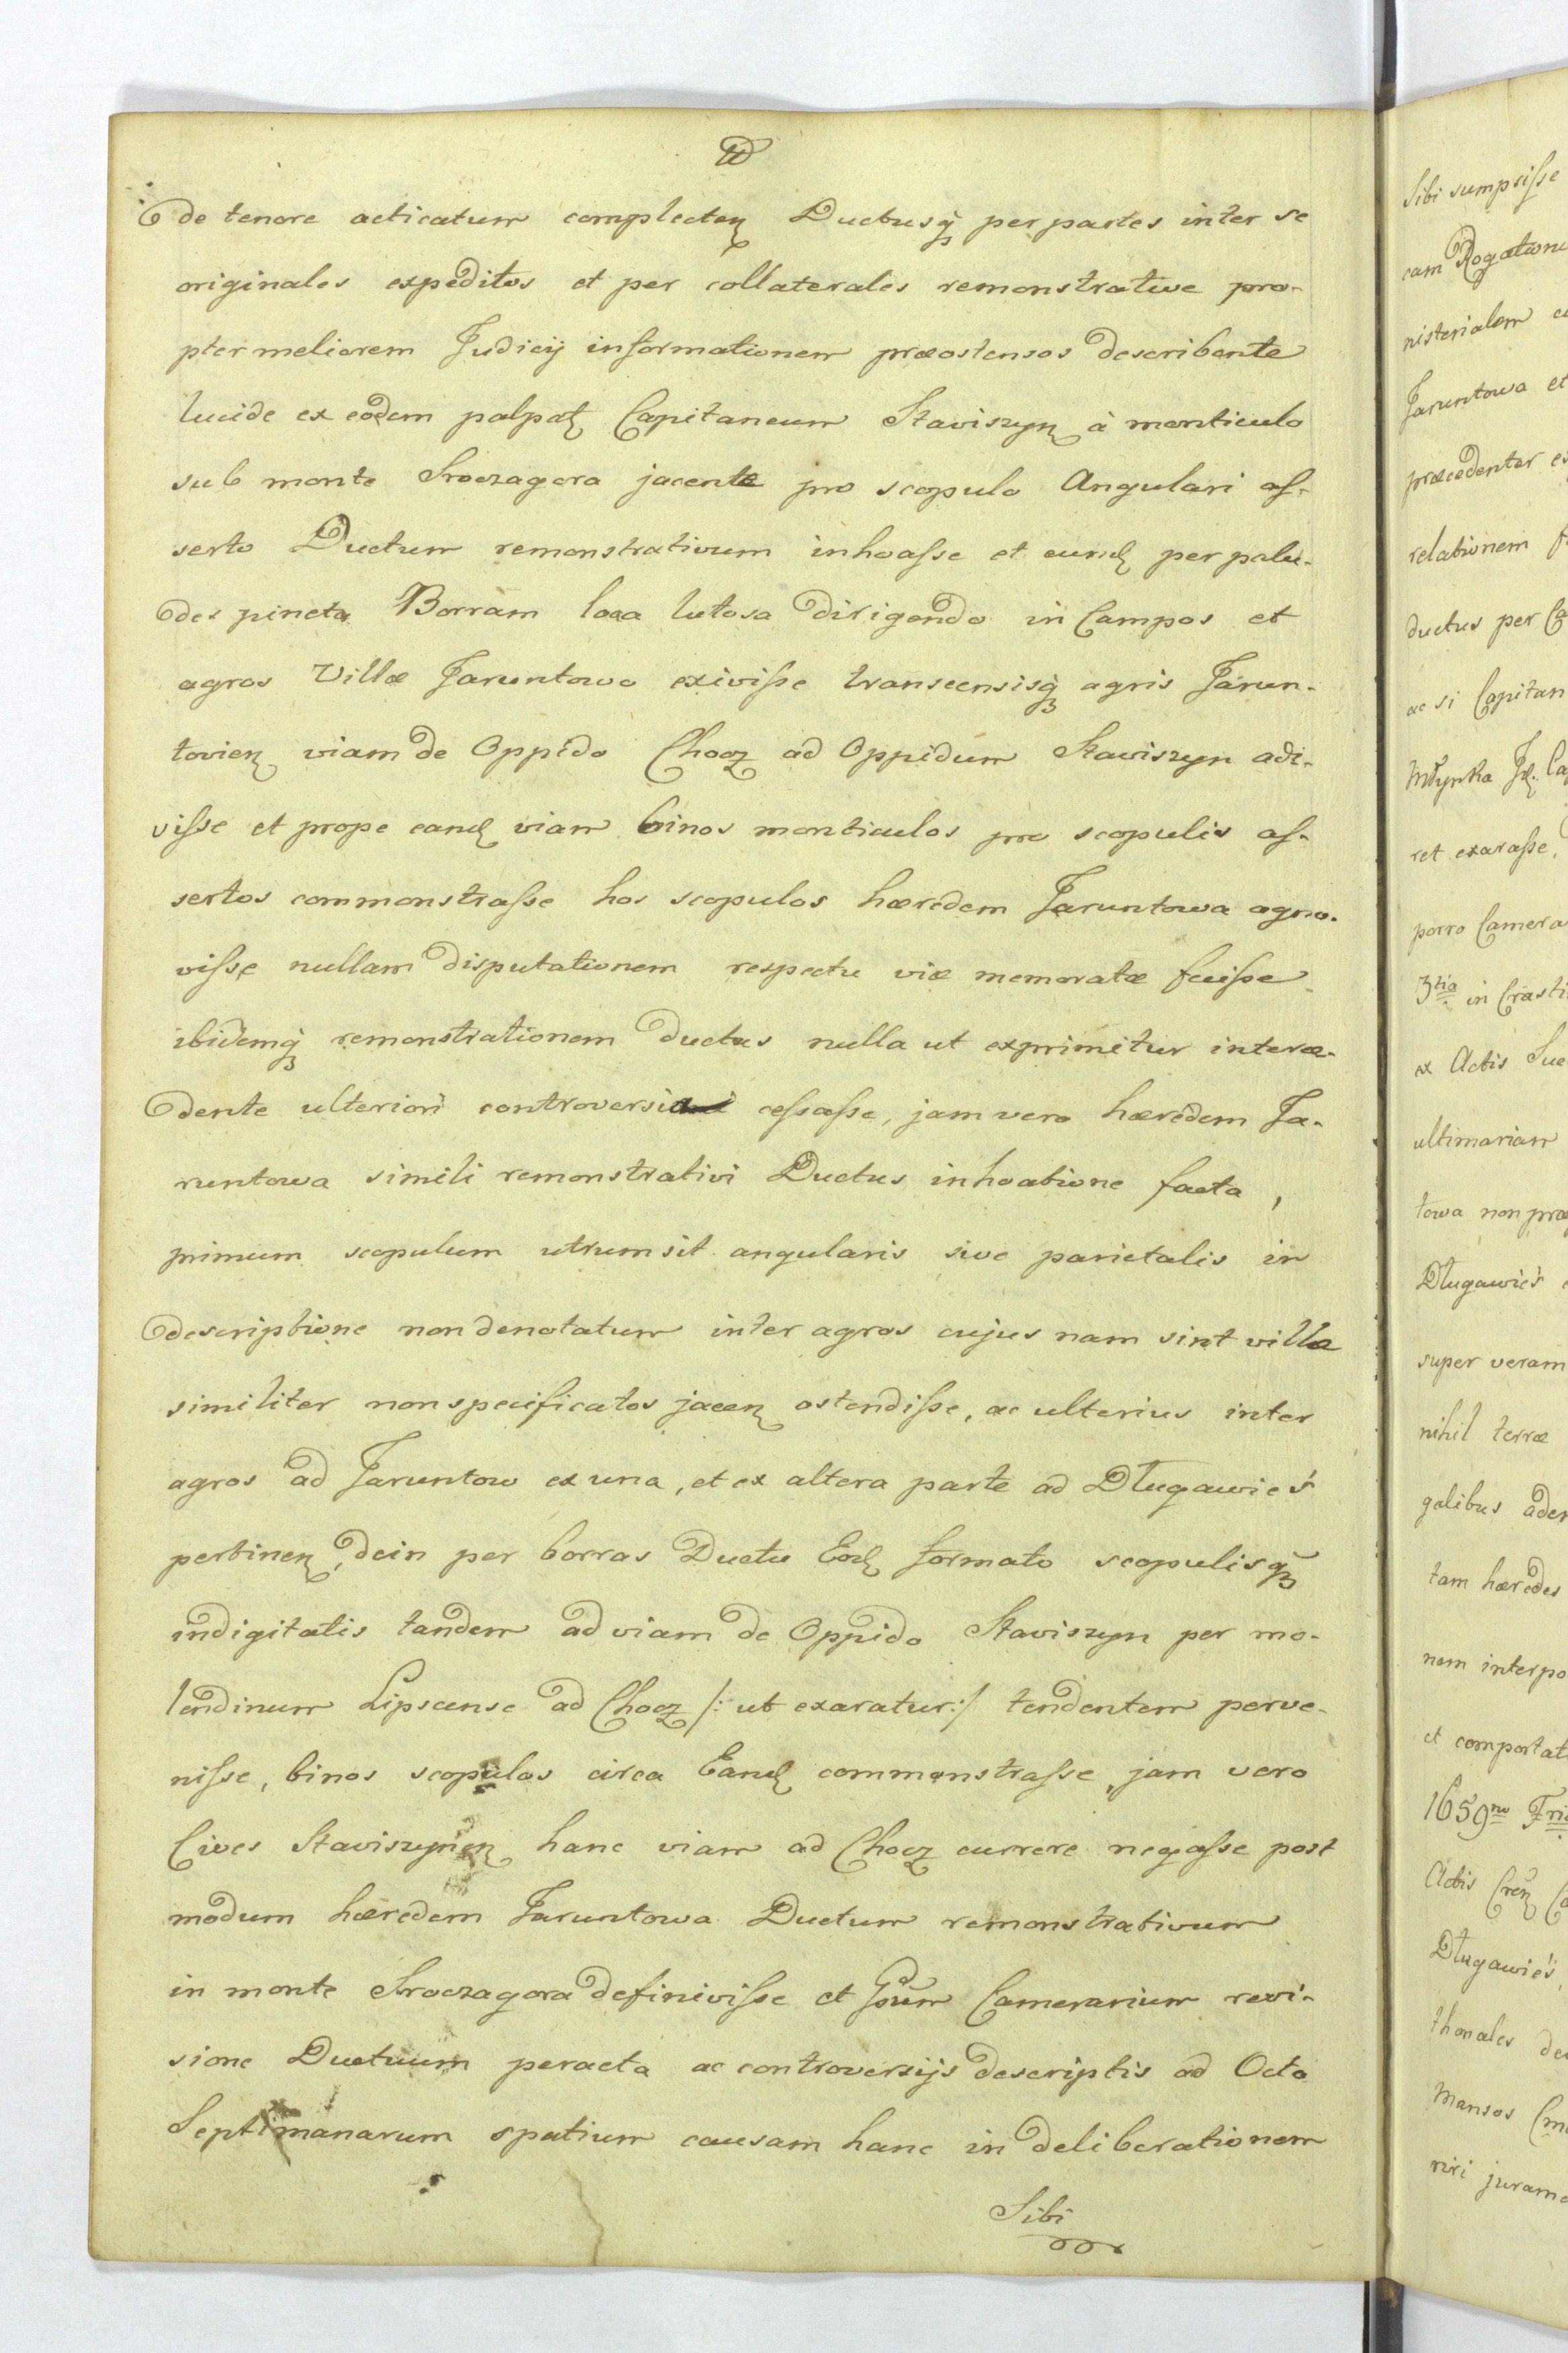 de tenore acticatum complecten Ductusq3 per partes inter se
originales expeditos et per collaterales remonstrative pro-
pter meliorem Judicij informationem præostensos describente
lucide ex eodem palpat Capitaneum Stawiszyn à monticulo
sub monte Sroczagora jacente pro scopulo Angulari as-
serto Ductum remonstrativum inhoasse et eund per palu-
des pineta Borram loca lutosa dirigendo in Campos et
agros Villæ Jaruntowo exivisse transcensisq3 agris Jarun-
tovien viam de Oppido Chocz ad Oppidum Stawiszyn adi-
visse et prope eand viam binos monticulos pro scopulis as-
sertos commonstrasse hos scopulos hæredem Jaruntowa agno-
visse nullam disputationem respectu viæ memoratæ fuisse
ibidemq3 remonstrationem ductus nulla ut exprimitur interce-
dente ulteriori controversia cessasse, jam vero hæredem Ja-
runtowa simili remonstrativi Ductus inhoatione facta,
primum scopulum utrum sit angularis sive parietalis in
descriptione non denotatum inter agros cujus nam sint villæ
similiter non specificatos jacen ostendisse, ac ulterius inter
agros ad Jaruntow ex una, et ex altera parte ad Długawieś
pertinen, dein per borras Ductu Eod formato scopulisq3
indigitatis tandem ad viam de Oppido Stawiszyn per mo-
lendinum Lipscense ad Chocz /: ut exaratur :/ tendentem perve-
nisse, binos scopulos circa Eand commonstrasse, jam vero
Cives Stawiszynen hanc viam ad Chocz currere negasse post
modum hæredem Jaruntowa Ductum remonstrativum
in monte Sroczagora definivisse et Gsum Camerarium revi-
sione Ductuum peracta ac controversijs descriptis ad Octo
Septimanarum spatium causam hanc in deliberationem
Sibi
Sibi sumpsisse
eam Rogation
nisterialem
Jaruntowa et
præcedenter
relationem
ductus per
ac si Capitan
Młynka
ret exarasse,
porro Camera
3tia in Crasti
ex Actis
ultimariam
towa non
Długawieś
super veram
nihil terræ
galibus
tam hæredes
nem interpo
et comportat
1659no
Actis
Długawieś
thonales
Mansos
niri jurame